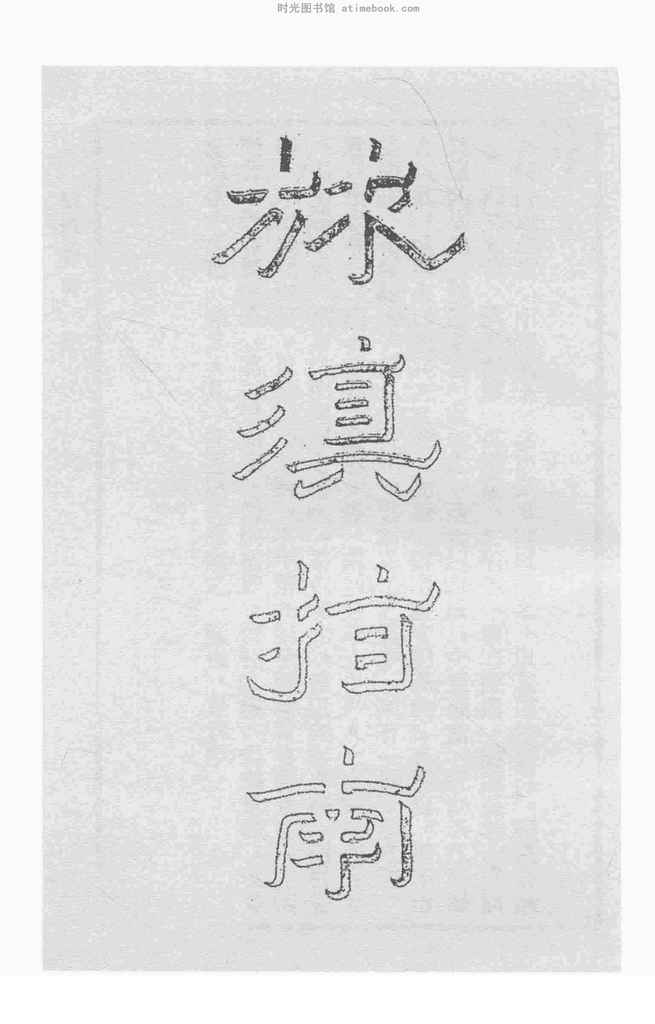 时光图书馆 atimebook.com
旅
滇
指
南